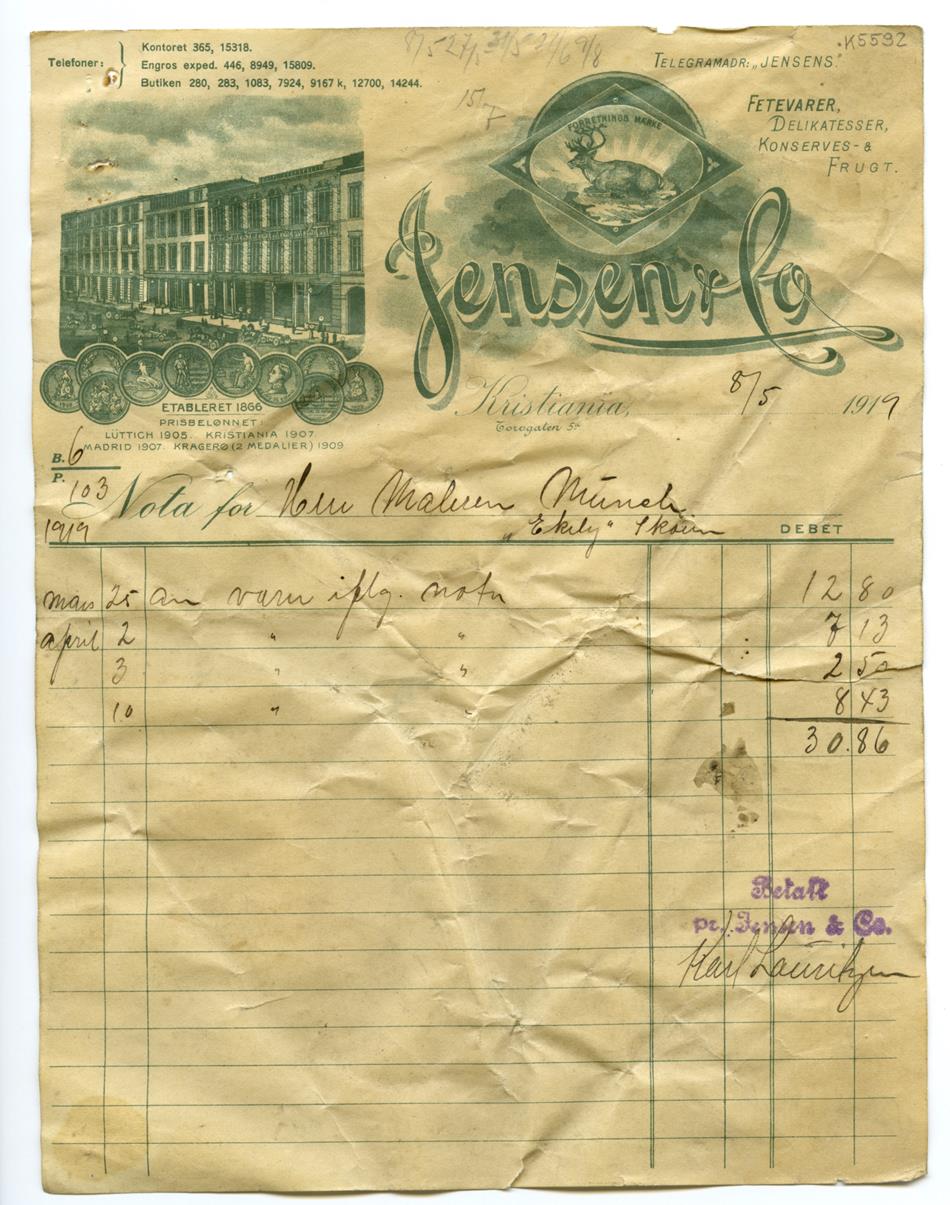 K5592
8/5 27/5
15/7
Telefoner:
Kontoret 365, 15318.
Engros exped. 446, 8949, 15809.
Butiken 280, 283, 1083, 7924, 9167 k, 12700, 14244.
TELEGRAMADR: „JENSENS."
FETEVARER,
DELIKATESSER,
KONSERVES- &
FRUGT.
FORRETNINGS MÆRKE
Jensen & Co
ETABLERET 1866
PRISBELØNNET:
LÜTTICH 1905. KRISTIANIA 1907.
MADRID 1907. KRAGERØ (2 MEDALIER) 1909
Kristiania, 8/5 1919
Torvgaten 5
B. 6
P. 103
Nota for Herr Maleren Münch
„Ekely" Skøien
1919
DEBET
mars 25 an varer iflg. nota 12 80
april 2 " " 7 13
3 " " 2 50
10 " " 8 43
30.86
Betalt
pr. Jensen & Co.
Karl Lauritzen